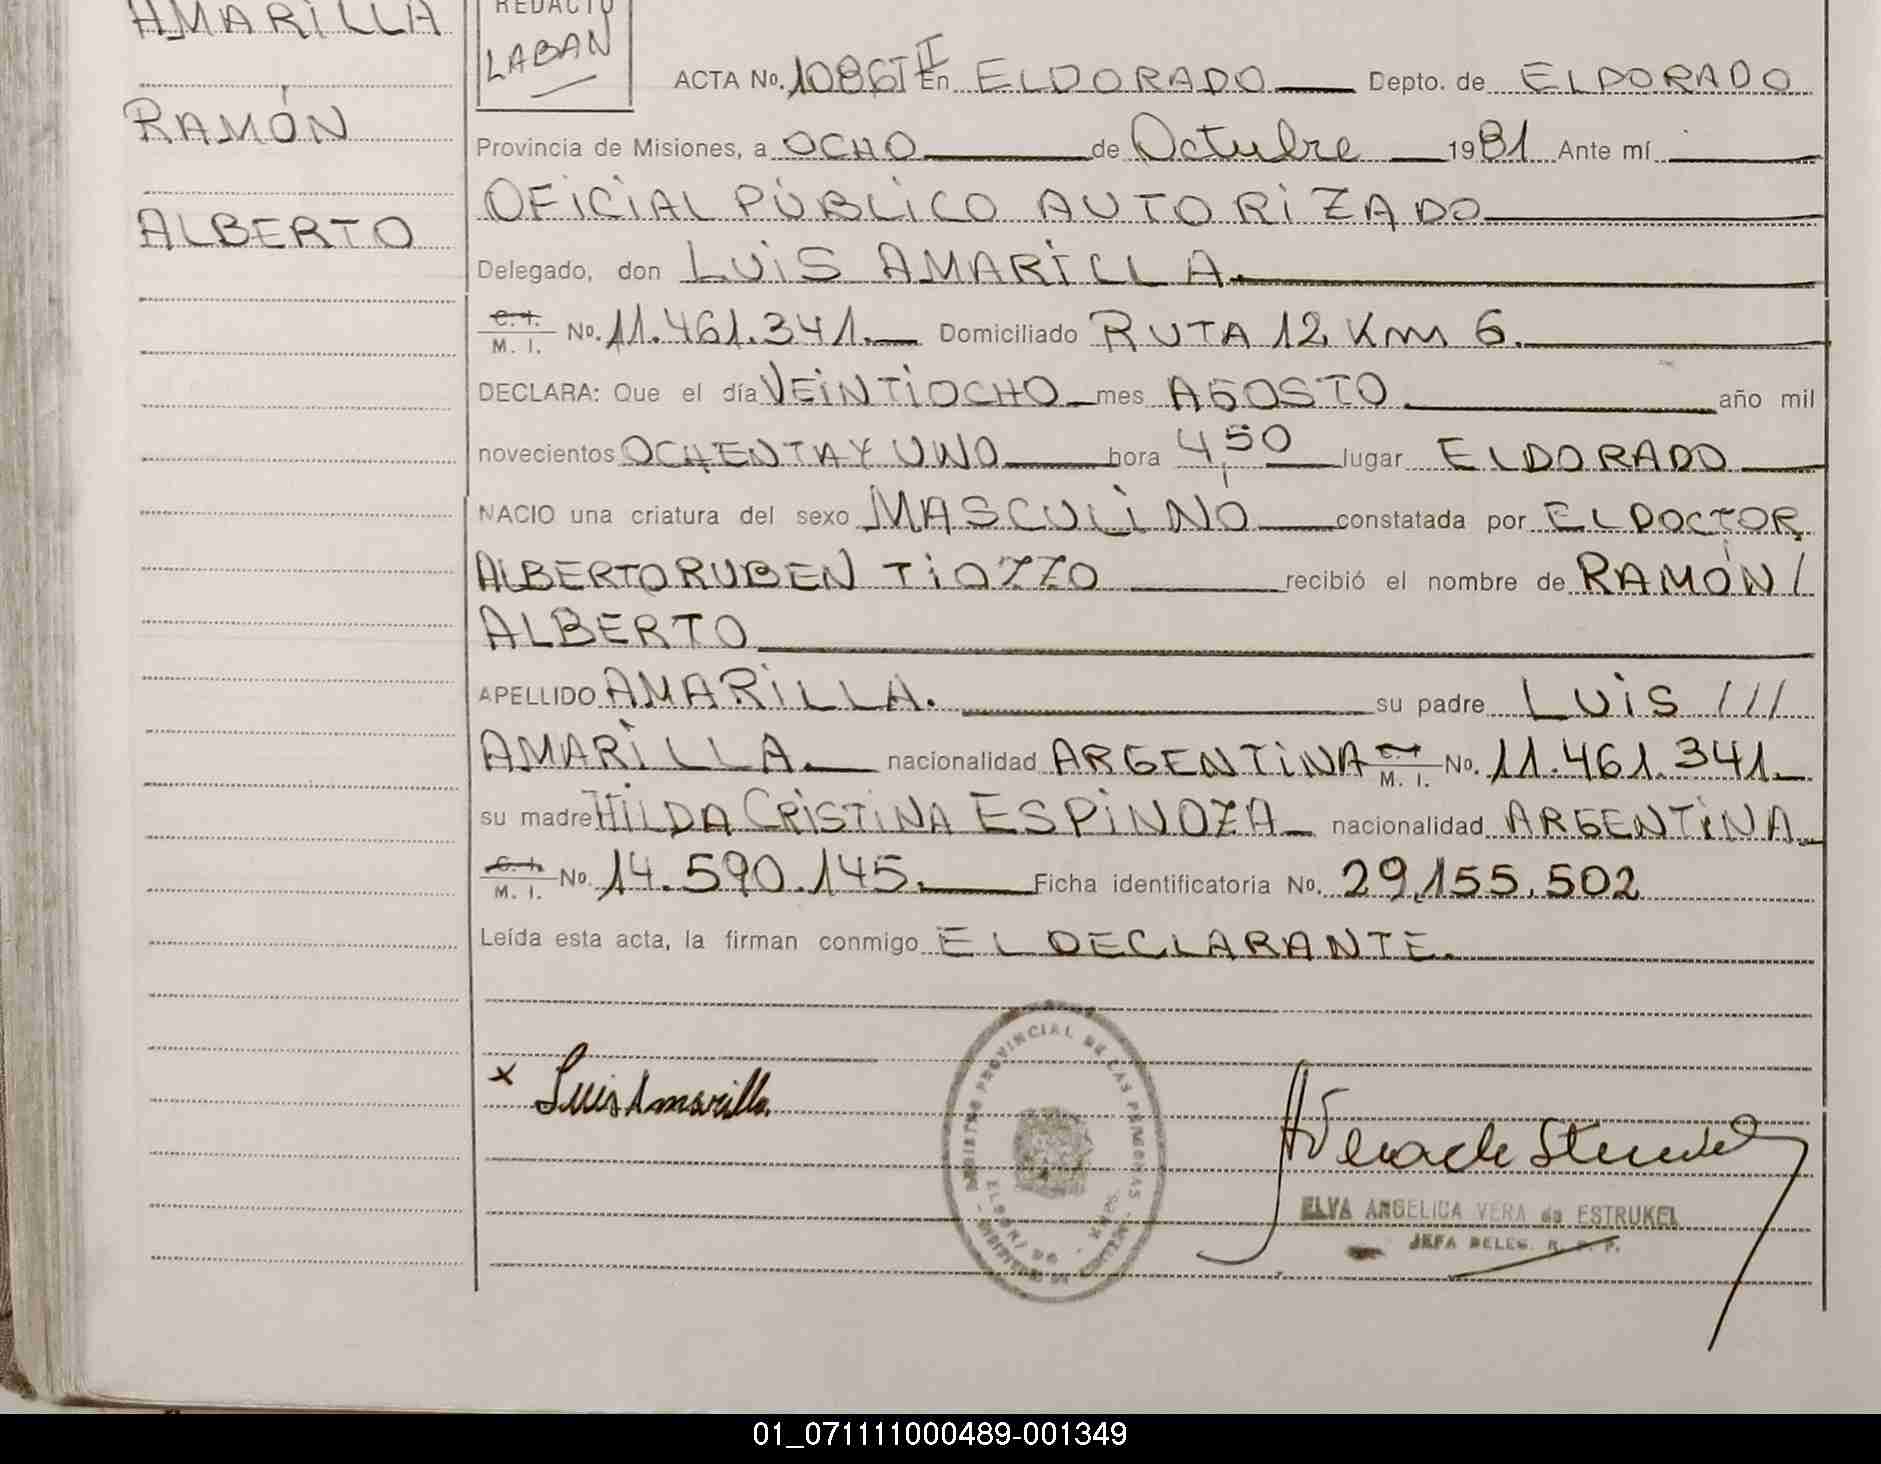 AMARILLA
RAMÓN
ALBERTO
REDACTÓ
LABAN
ACTA No. 1086 T II En ELDORADO Depto. de ELDORADO
Provincia de Misiones, a OCHO de Octubre 1981 Ante mí
OFICIAL PÚBLICO AUTORIZADO
Delegado, don LUIS AMARILLA.
C. I. M. I. No. 11.461.341. Domiciliado RUTA 12 Km 6.
DECLARA: Que el día VEINTIOCHO mes AGOSTO año mil
novecientos OCHENTA Y UNO hora 4,50 lugar ELDORADO
NACIO una criatura del sexo MASCULINO constatada por EL DOCTOR
ALBERTO RUBEN TIOZZO recibió el nombre de RAMÓN /
ALBERTO
APELLIDO AMARILLA. su padre LUIS ///
AMARILLA. nacionalidad ARGENTINA C. I. M. I. No. 11.461.341.
su madre HILDA CRISTINA ESPINOZA nacionalidad ARGENTINA
C. I. M. I. No. 14.590.145. Ficha identificatoria No. 29.155.502
Leída esta acta, la firman conmigo EL DECLARANTE.
x Luis Amarilla
REGISTRO PROVINCIAL DE LAS PERSONAS
ELVA ANGELICA VERA de ESTRUKEL
JEFA DELEG. R. P. P.
01_071111000489-001349